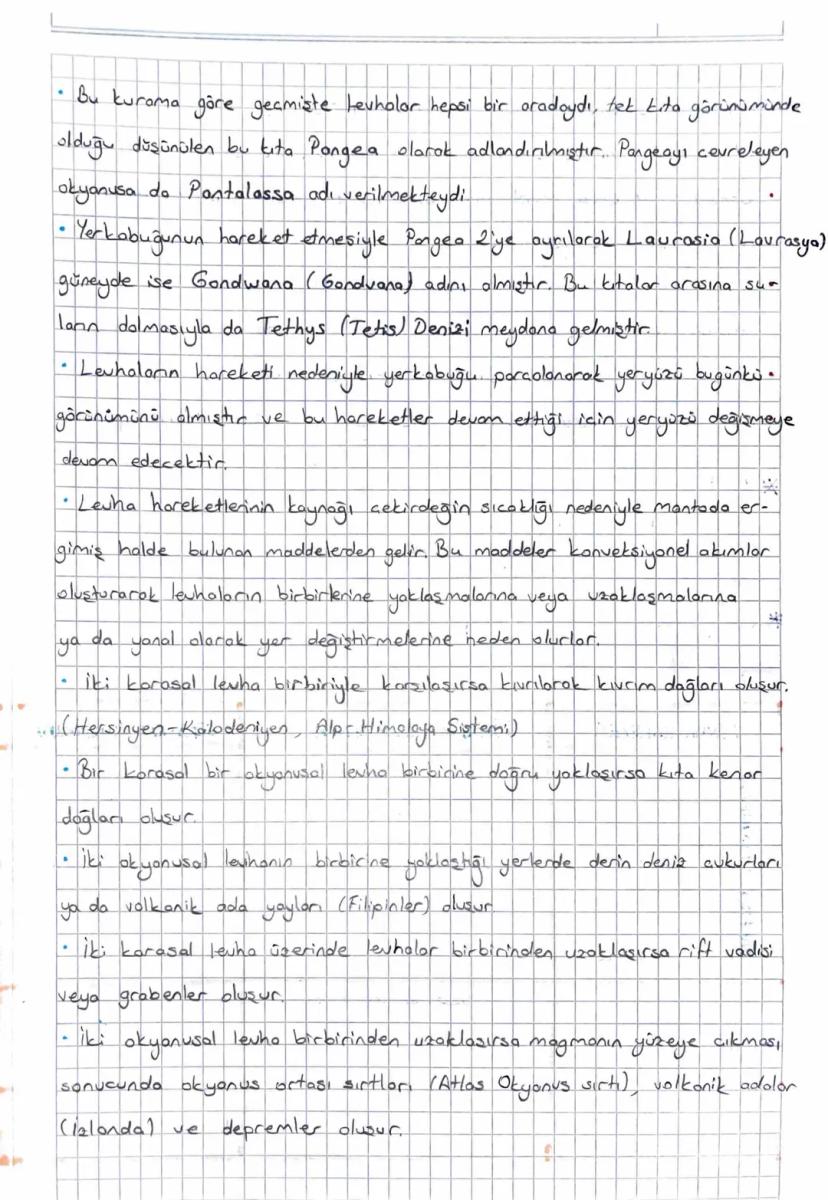 • Bu kurama göre geçmişte levhalar hepsi bir aradaydı, tek kıta görünümünde
olduğu düşünülen bu kıta Pangea olarak adlandırılmıştır. Pangeayı çevreleyen
okyanusa da Pantalassa adı verilmekteydi.
• Yerkabuğunun hareket etmesiyle Pangea 2'ye ayrılarak Laurasia (Lavrasya)
güneyde ise Gondwana (Gondvana) adını almıştır. Bu kıtalar arasına su-
ların dolmasıyla da Tethys (Tetis) Denizi meydana gelmiştir.
• Levhaların hareketi nedeniyle yerkabuğu parçalanarak yeryüzü bugünkü
görünümünü almıştır ve bu hareketler devam ettiği için yeryüzü değişmeye
devam edecektir.
• Levha hareketlerinin kaynağı çekirdeğin sıcaklığı nedeniyle mantoda er-
gimiş halde bulunan maddelerden gelir. Bu maddeler konveksiyonel akımlar
oluşturarak levhaların birbirlerine yaklaşmalarına veya uzaklaşmalarına
ya da yanal olarak yer değiştirmelerine neden olurlar.
• İki karasal levha birbiriyle karşılaşırsa kıvrılarak kıvrım dağları oluşur.
(Hersinyen-Kalodeniyen, Alp-Himalaya Sistemi)
• Bir karasal bir okyanusal levha birbirine doğru yaklaşırsa kıta kenar
dağları oluşur.
• İki okyanusal levhanın birbirine yaklaştığı yerlerde derin deniz çukurları
ya da volkanik ada yayları (Filipinler) oluşur.
• İki karasal levha üzerinde levhalar birbirinden uzaklaşırsa rift vadisi
veya grabenler oluşur.
• İki okyanusal levha birbirinden uzaklaşırsa magmanın yüzeye çıkması
sonucunda okyanus ortası sırtları (Atlas Okyanus sırtı), volkanik adalar
(İzlanda) ve depremler oluşur.